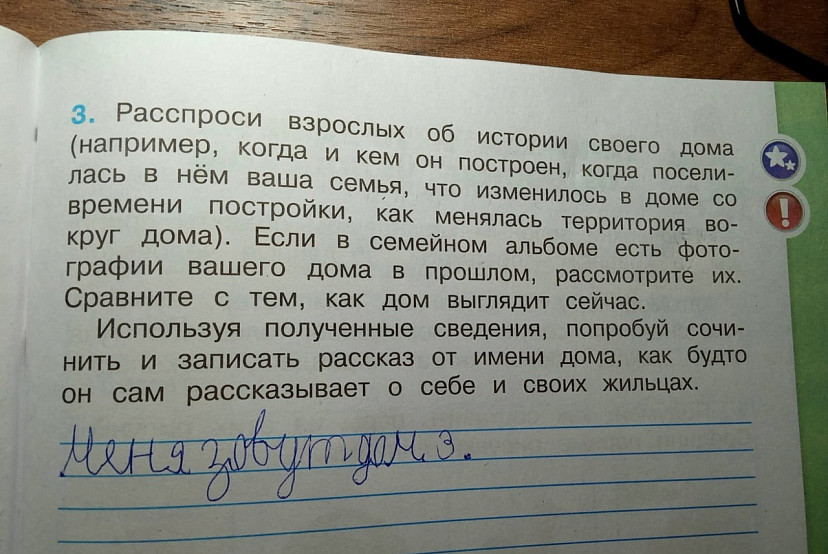 3. Расспроси взрослых об истории своего дома
(например, когда и кем он построен, когда посели-
лась в нём ваша семья, что изменилось в доме со
времени постройки, как менялась территория во-
круг дома). Если в семейном альбоме есть фото-
графии вашего дома в прошлом, рассмотрите их.
Сравните с тем, как дом выглядит сейчас.
Используя полученные сведения, попробуй сочи-
нить и записать рассказ от имени дома, как будто
он сам рассказывает о себе и своих жильцах.
Меня зовут дом 3.